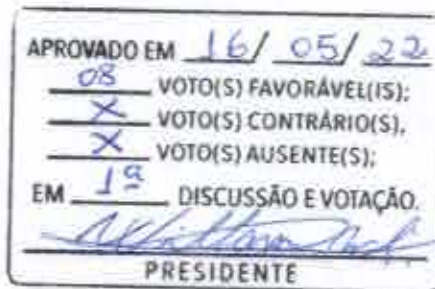 APROVADO EM 16/05/22
08 VOTO(S) FAVORÁVEL(IS);
X VOTO(S) CONTRÁRIO(S),
X VOTO(S) AUSENTE(S);
EM 1ª DISCUSSÃO E VOTAÇÃO.
PRESIDENTE